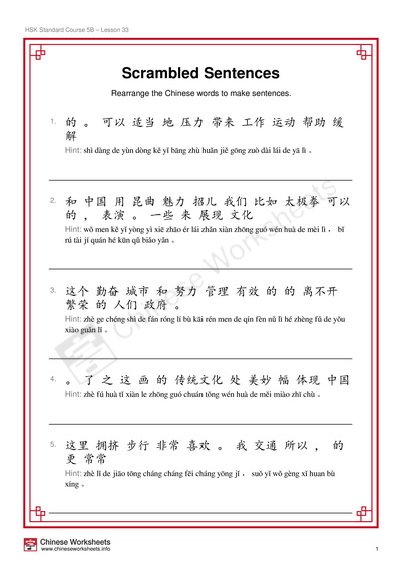 HSK Standard Course 5B – Lesson 33
Scrambled Sentences
Rearrange the Chinese words to make sentences.
1. 的 。 可以 适当 地 压力 带来 工作 运动 帮助 缓
解
Hint: shì dàng de yùn dòng kě yǐ bāng zhù huǎn jiě gōng zuò dài lái de yā lì 。
2. 和 中国 用 昆曲 魅力 招儿 我们 比如 太极拳 可以
的 ， 表演 。 一些 来 展现 文化
Hint: wǒ men kě yǐ yòng yì xiē zhāo ér lái zhǎn xiàn zhōng guó wén huà de mèi lì ， bǐ
rú tài jí quán hé kūn qǔ biǎo yǎn 。
3. 这个 勤奋 城市 和 努力 管理 有效 的 的 离不开
繁荣 的 人们 政府 。
Hint: zhè ge chéng shì de fán róng lí bù kāi rén men de qín fèn nǔ lì hé zhèng fǔ de yǒu
xiào guǎn lǐ 。
4. 。 了 之 这 画 的 传统文化 处 美妙 幅 体现 中国
Hint: zhè fú huà tǐ xiàn le zhōng guó chuán tǒng wén huà de měi miào zhī chù 。
5. 这里 拥挤 步行 非常 喜欢 。 我 交通 所以 ， 的
更 常常
Hint: zhè lǐ de jiāo tōng cháng cháng fēi cháng yōng jǐ ， suǒ yǐ wǒ gèng xǐ huan bù
xíng 。
Chinese Worksheets
Chinese Worksheets
www.chineseworksheets.info
1